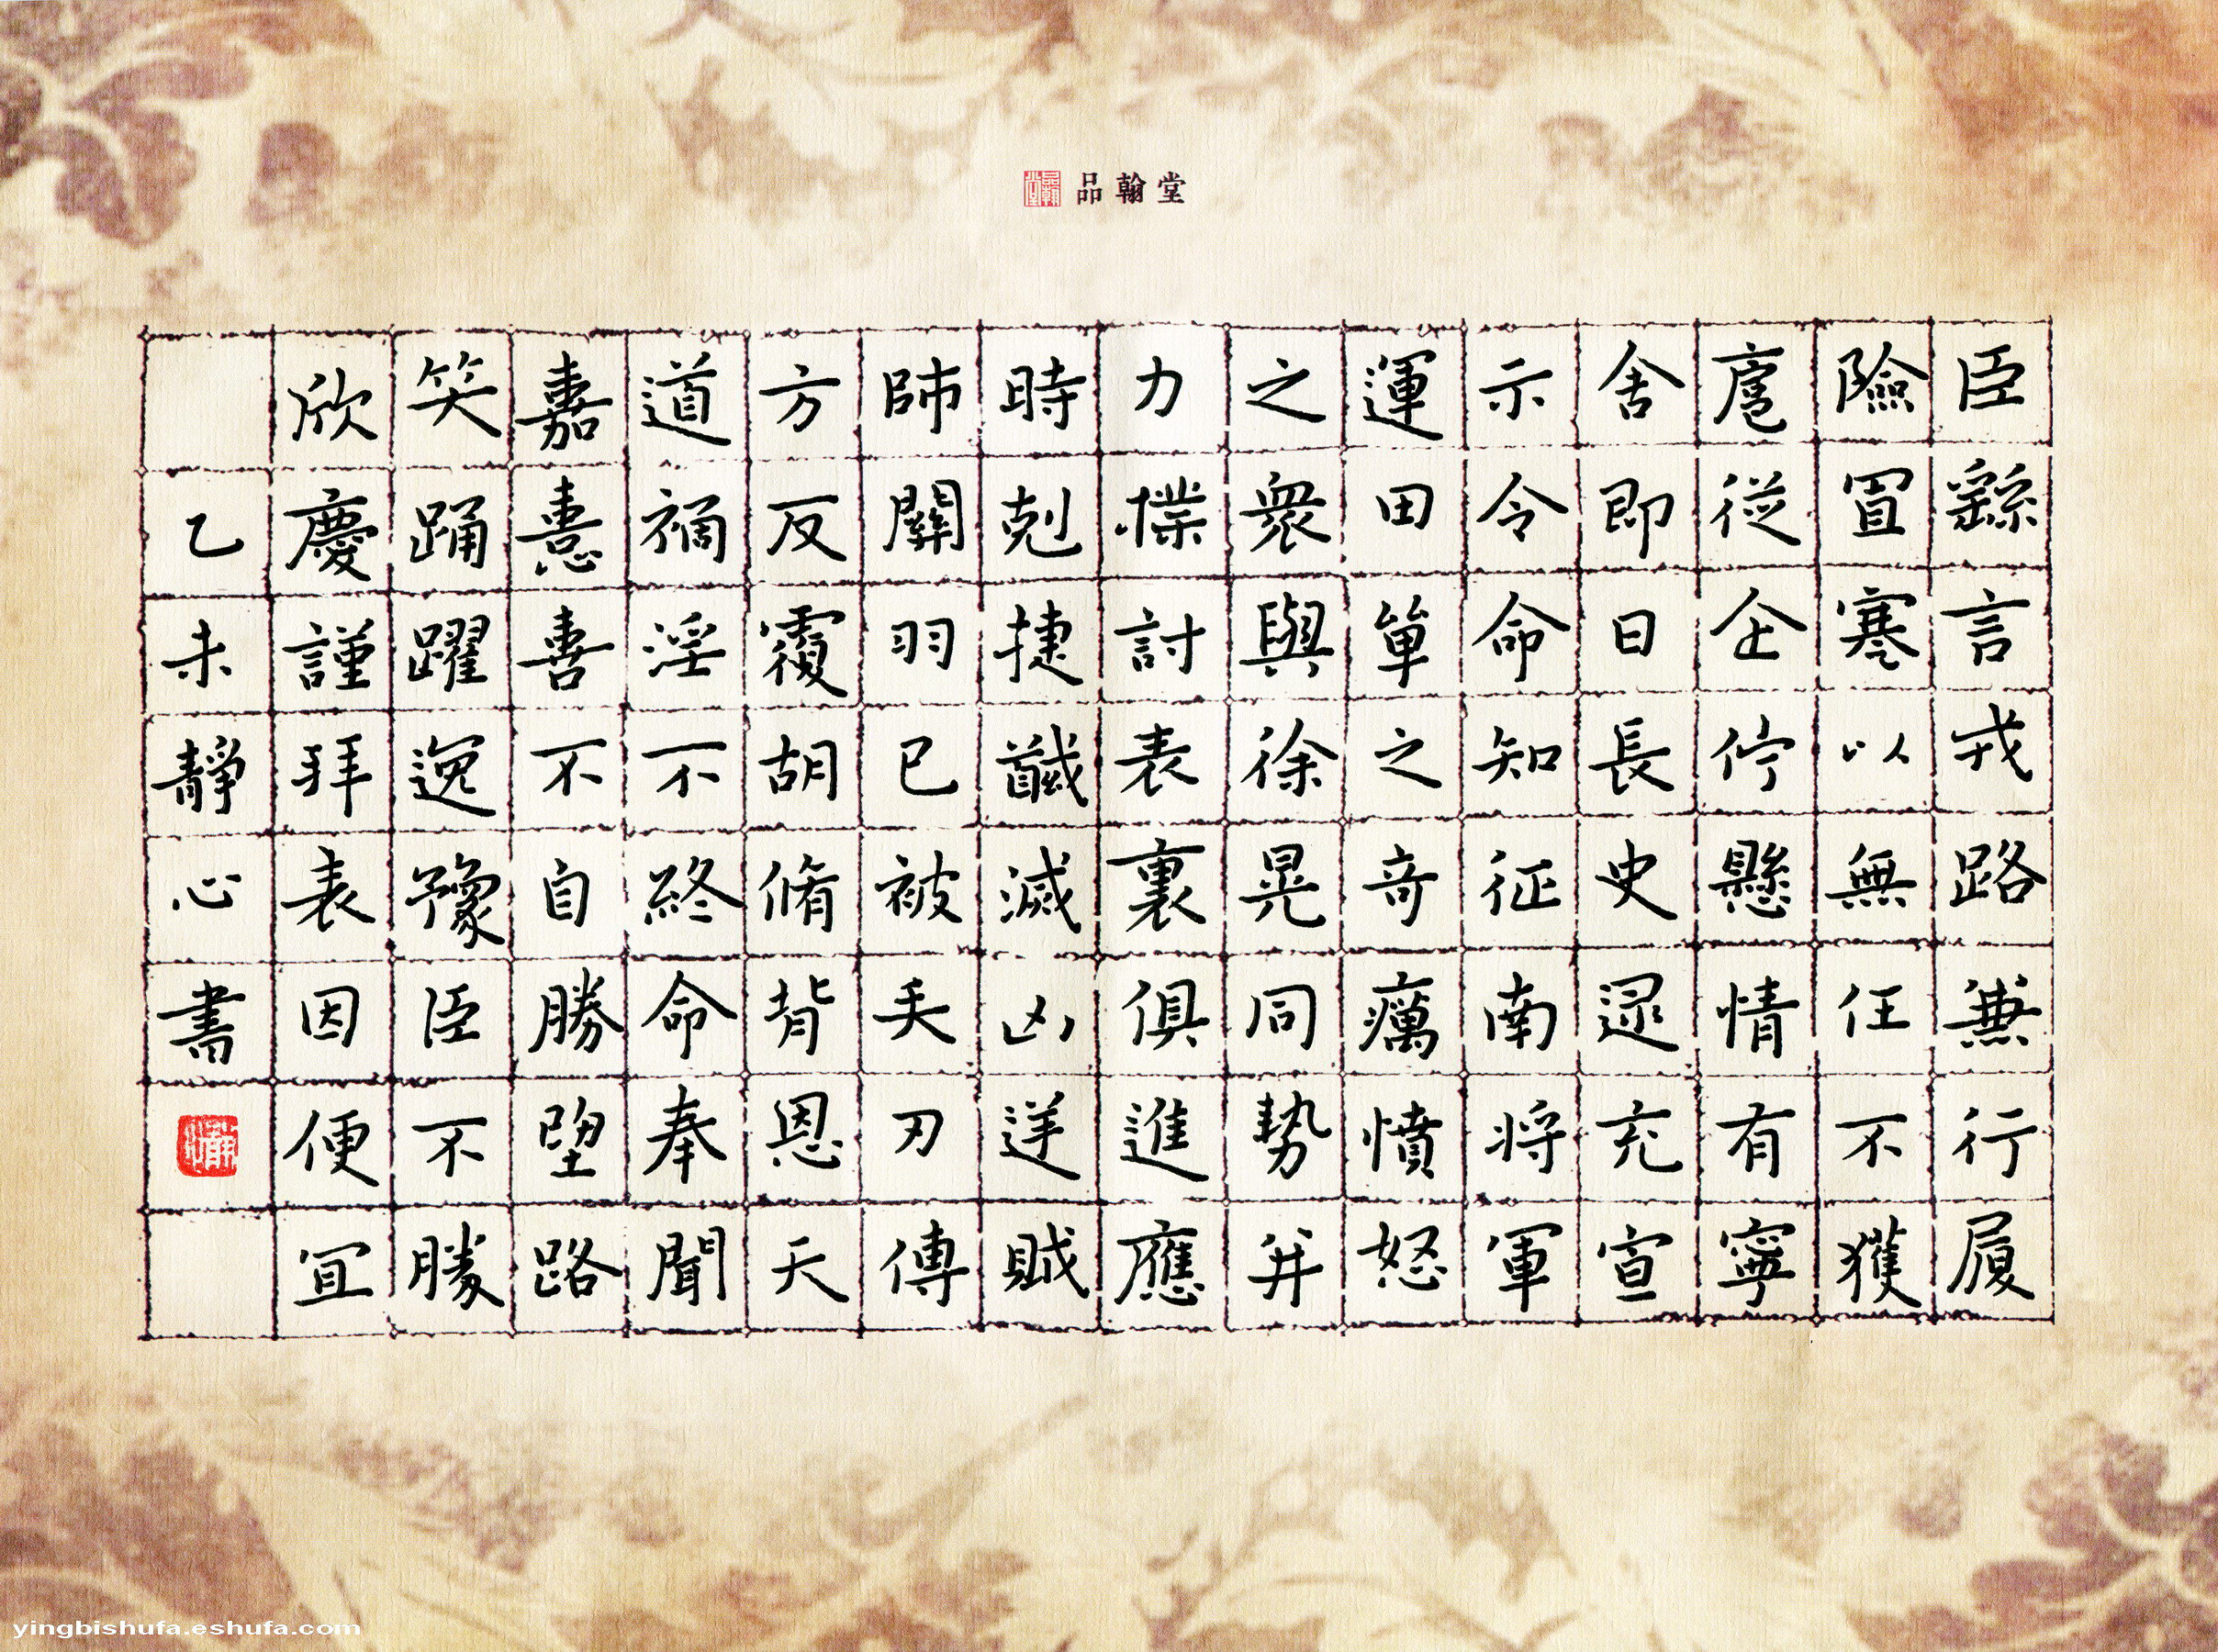 品翰堂
臣繇言戎路兼行履
險冒寒以無任不獲
扈從企佇懸情有寧
舍即日長史逯充宣
示令命知征南將軍
運田單之奇癘憤怒
之衆與徐晃同勢并
力撲討表裏俱進應
時剋捷馘滅凶逆賊
帥關羽已被矢刃傅
方反覆胡脩背恩天
道禍淫不終命奉聞
嘉憙喜不自勝望路
笑踊躍逸豫臣不勝
欣慶謹拜表因便宜
乙未靜心書
yingbishufa.eshufa.com